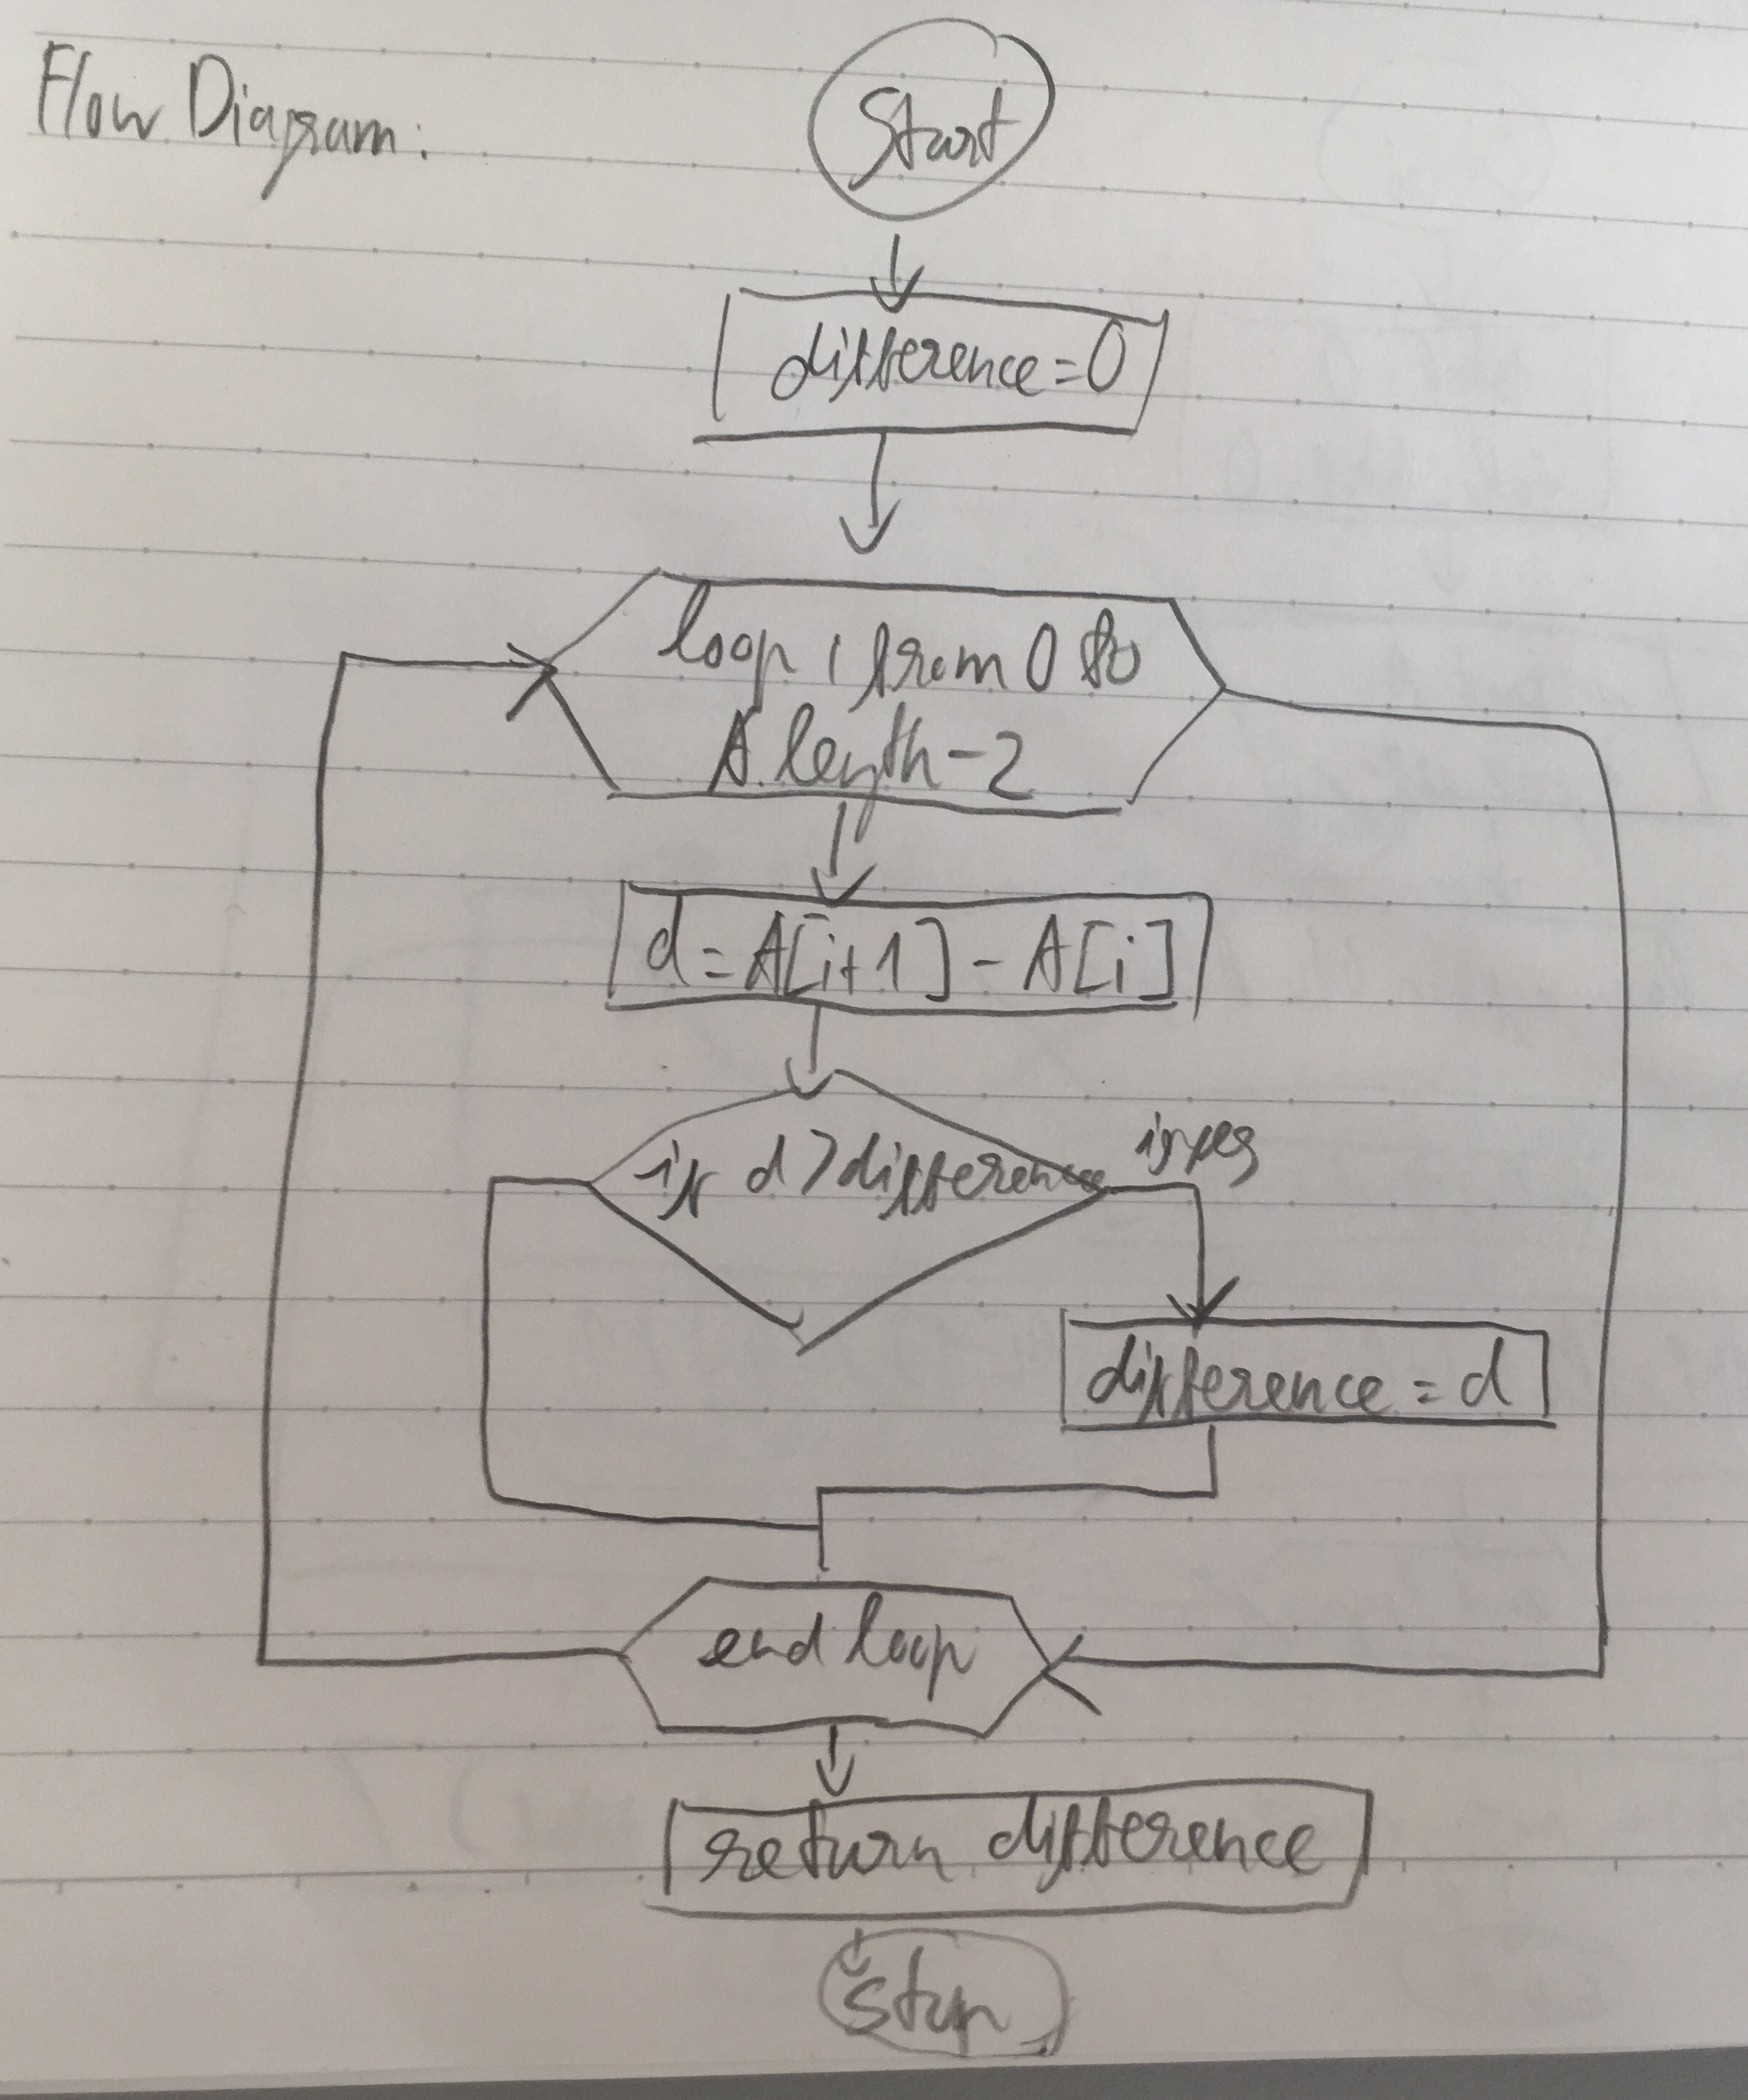 Flow Diagram:
Start
difference=0
loop i from 0 to
A.length-2
d=A[i+1]-A[i]
if d>difference
if yes
difference=d
end loop
return difference
stop